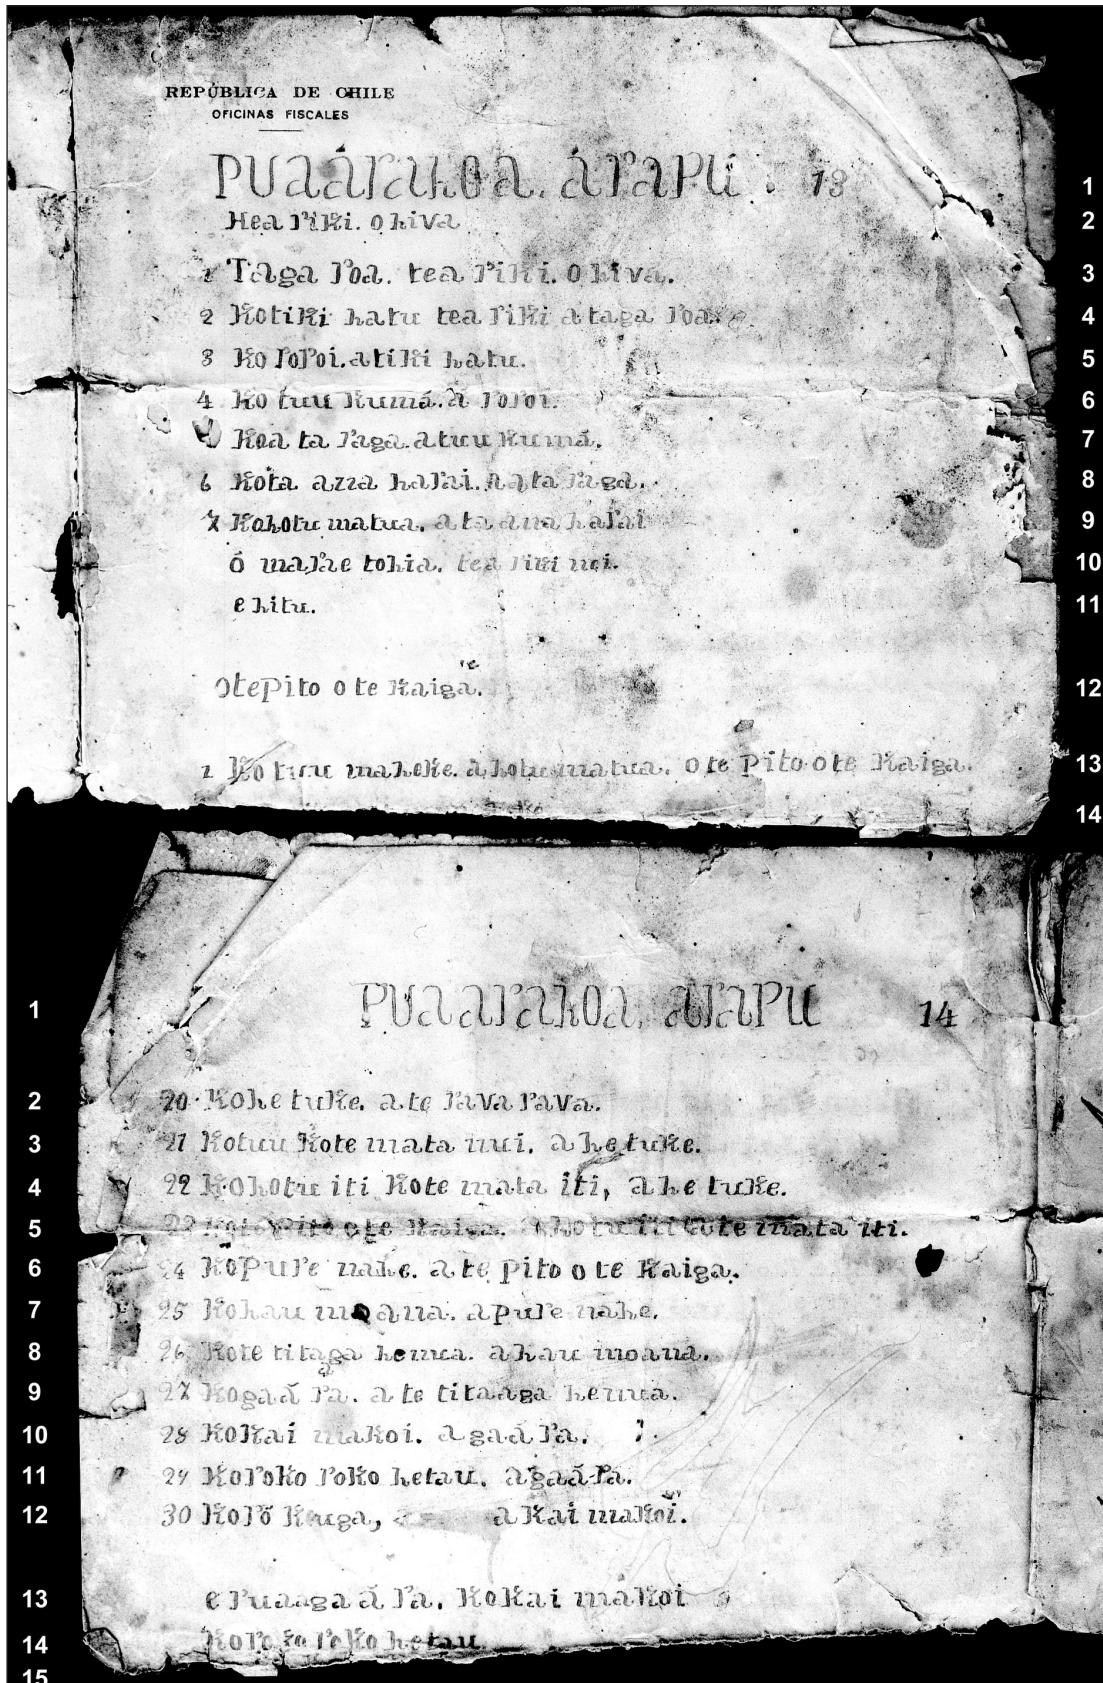 REPÚBLICA DE CHILE
OFICINAS FISCALES
PUaáraHoa. áraPU. 13 1
Hea riki. o hiva 2
1 Taga roa. tea riki. o hiva. 3
2 Kotiki hatu tea riki a taga roa. 4
3 Ko roroi. atiki hatu. 5
4 Ko tuu kumá. á roroi. 6
Koa ta raga. atuu kumá. 7
6 Kota ana harai. a ta raga. 8
7 Kohotu matua. a ta ana harai 9
ó marae tohia. tea riki nui. 10
e hitu. 11
otepito o te kaiga. 12
1 Ko tuu maheke. a hotu matua. o te pito o te kaiga. 13
14
1 PUaaraHoa. araPU 14
2 20. Kohe tuke. a te rava rava.
3 21 Kotuu kote mata nui. a he tuke.
4 22 Kohotu iti kote mata iti, a he tuke.
5 23 Kote Pito o te kaiga. a hotu iti cote mata iti.
6 24 KoPure nahe. a te pito o te kaiga.
7 25 Kohau moana. apure nahe.
8 26 Kote titaga hemua. a hau moana.
9 27 Kogaá ra. a te titaaga hemua.
10 28 Kokai makoi. a gaá ra.
11 29 Koroko roko hetau. agaá-ra.
12 30 Koró kauga, a kai makoi.
13 e ruaaga á ra. kokai makoi
14 Koroko roko hetau
15